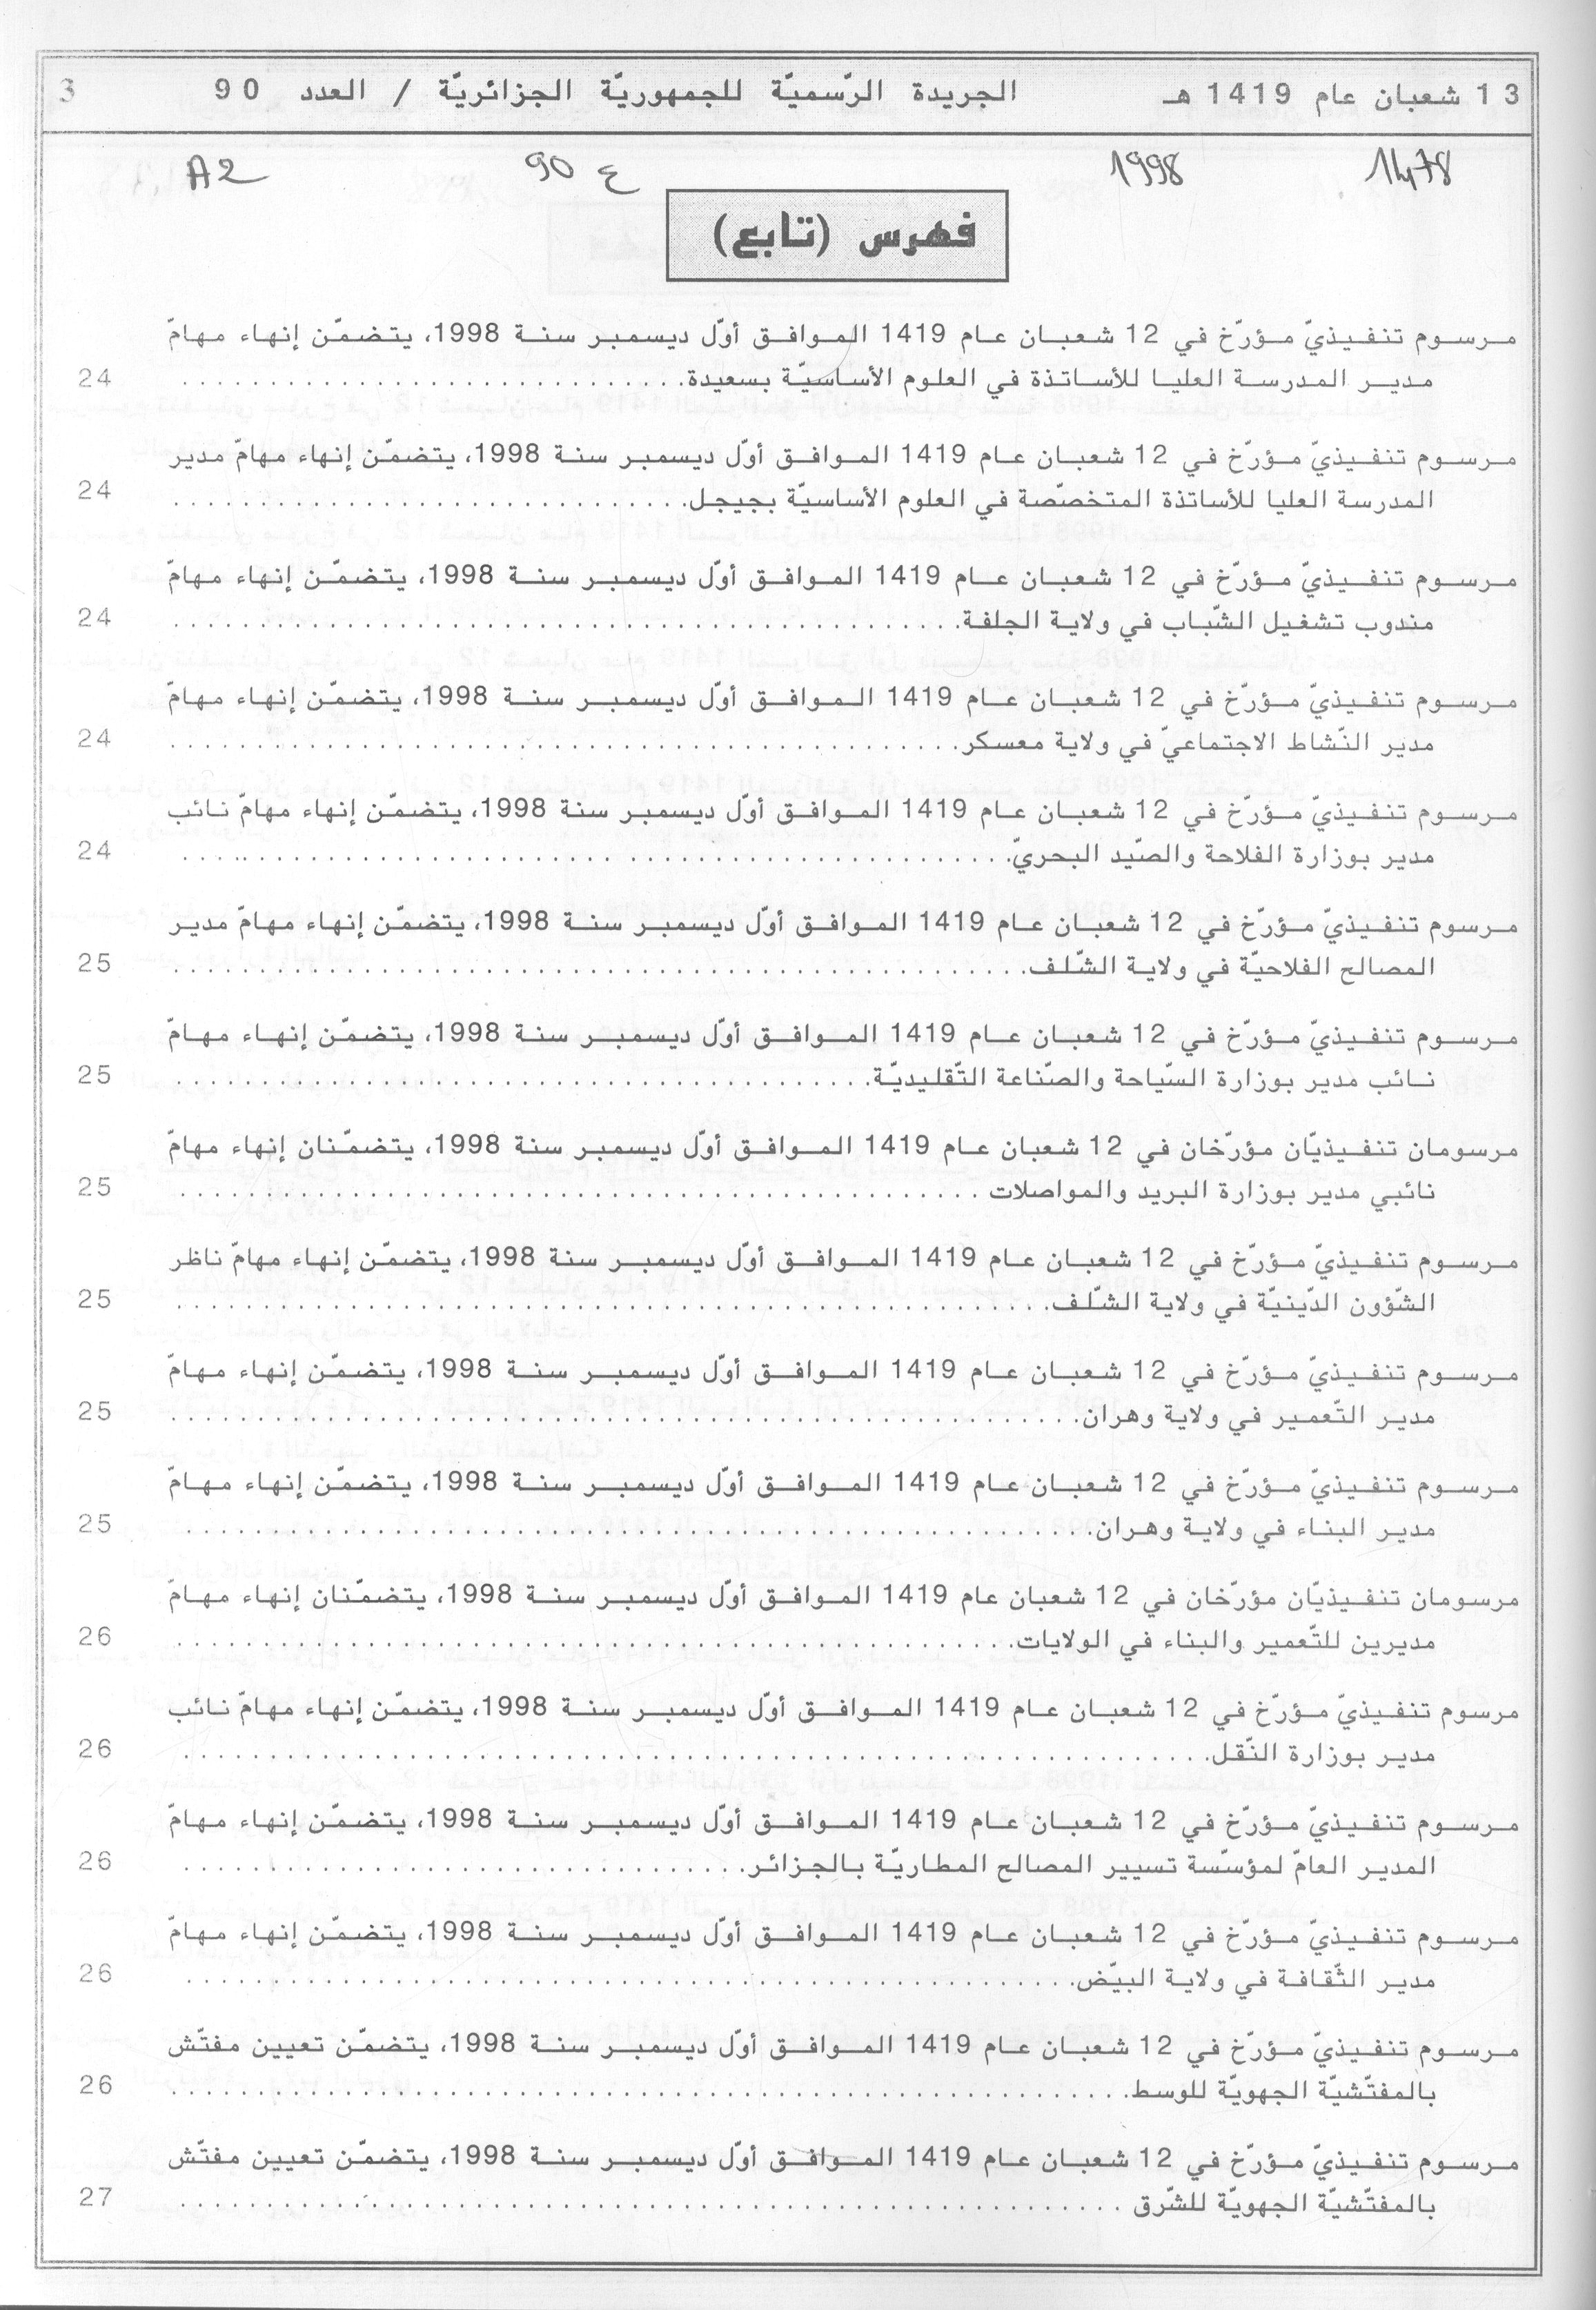 13 شعبان عام 1419 هـ الجريدة الرّسميّة للجمهوريّة الجزائريّة / العدد 90 3
1478 1998 ع 90 A2
فهرس (تابع)
مرسوم تنفيذيّ مؤرّخ في 12 شعبان عام 1419 الموافق أوّل ديسمبر سنة 1998، يتضمّن إنهاء مهامّ
مدير المدرسة العليا للأساتذة في العلوم الأساسيّة بسعيدة. 24
مرسوم تنفيذيّ مؤرّخ في 12 شعبان عام 1419 الموافق أوّل ديسمبر سنة 1998، يتضمّن إنهاء مهامّ مدير
المدرسة العليا للأساتذة المتخصّصة في العلوم الأساسيّة بجيجل. 24
مرسوم تنفيذيّ مؤرّخ في 12 شعبان عام 1419 الموافق أوّل ديسمبر سنة 1998، يتضمّن إنهاء مهامّ
مندوب تشغيل الشّباب في ولاية الجلفة. 24
مرسوم تنفيذيّ مؤرّخ في 12 شعبان عام 1419 الموافق أوّل ديسمبر سنة 1998، يتضمّن إنهاء مهامّ
مدير النّشاط الاجتماعيّ في ولاية معسكر. 24
مرسوم تنفيذيّ مؤرّخ في 12 شعبان عام 1419 الموافق أوّل ديسمبر سنة 1998، يتضمّن إنهاء مهامّ نائب
مدير بوزارة الفلاحة والصّيد البحريّ. 24
مرسوم تنفيذيّ مؤرّخ في 12 شعبان عام 1419 الموافق أوّل ديسمبر سنة 1998، يتضمّن إنهاء مهامّ مدير
المصالح الفلاحيّة في ولاية الشّلف. 25
مرسوم تنفيذيّ مؤرّخ في 12 شعبان عام 1419 الموافق أوّل ديسمبر سنة 1998، يتضمّن إنهاء مهامّ
نائب مدير بوزارة السّياحة والصّناعة التّقليديّة. 25
مرسومان تنفيذيّان مؤرّخان في 12 شعبان عام 1419 الموافق أوّل ديسمبر سنة 1998، يتضمّنان إنهاء مهامّ
نائبي مدير بوزارة البريد والمواصلات 25
مرسوم تنفيذيّ مؤرّخ في 12 شعبان عام 1419 الموافق أوّل ديسمبر سنة 1998، يتضمّن إنهاء مهامّ ناظر
الشّؤون الدّينيّة في ولاية الشّلف. 25
مرسوم تنفيذيّ مؤرّخ في 12 شعبان عام 1419 الموافق أوّل ديسمبر سنة 1998، يتضمّن إنهاء مهامّ
مدير التّعمير في ولاية وهران. 25
مرسوم تنفيذيّ مؤرّخ في 12 شعبان عام 1419 الموافق أوّل ديسمبر سنة 1998، يتضمّن إنهاء مهامّ
مدير البناء في ولاية وهران. 25
مرسومان تنفيذيّان مؤرّخان في 12 شعبان عام 1419 الموافق أوّل ديسمبر سنة 1998، يتضمّنان إنهاء مهامّ
مديرين للتّعمير والبناء في الولايات. 26
مرسوم تنفيذيّ مؤرّخ في 12 شعبان عام 1419 الموافق أوّل ديسمبر سنة 1998، يتضمّن إنهاء مهامّ نائب
مدير بوزارة النّقل. 26
مرسوم تنفيذيّ مؤرّخ في 12 شعبان عام 1419 الموافق أوّل ديسمبر سنة 1998، يتضمّن إنهاء مهامّ
المدير العامّ لمؤسّسة تسيير المصالح المطاريّة بالجزائر. 26
مرسوم تنفيذيّ مؤرّخ في 12 شعبان عام 1419 الموافق أوّل ديسمبر سنة 1998، يتضمّن إنهاء مهامّ
مدير الثّقافة في ولاية البيّض. 26
مرسوم تنفيذيّ مؤرّخ في 12 شعبان عام 1419 الموافق أوّل ديسمبر سنة 1998، يتضمّن تعيين مفتّش
بالمفتّشيّة الجهويّة للوسط. 26
مرسوم تنفيذيّ مؤرّخ في 12 شعبان عام 1419 الموافق أوّل ديسمبر سنة 1998، يتضمّن تعيين مفتّش
بالمفتّشيّة الجهويّة للشّرق 27